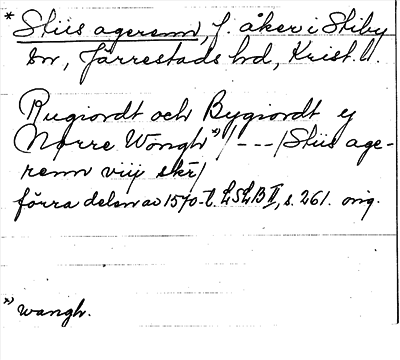 * Stiis agerenn, f. åker i Stiby
sn, Järrestads hd, Krist. l.
Rugiordt och Bygiordt ej
Nørre Wongh ×) / - - - / Stiis age-
renn viij skr /
förra delen av 1570-t. LSLB II, s. 261. orig.
×) wangh.